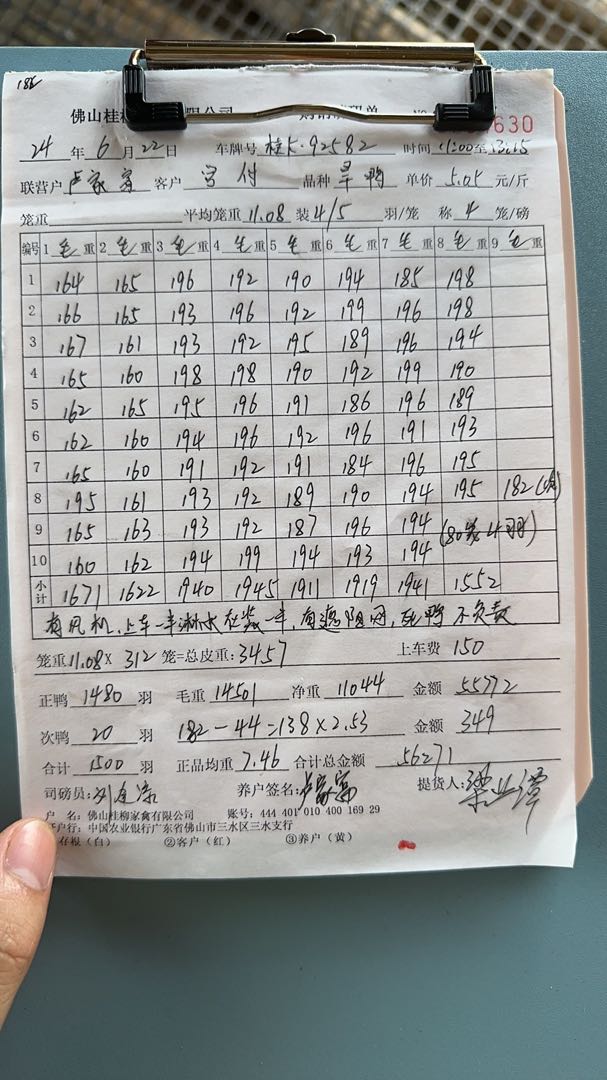 186
佛山桂柳 限公司
630
24 年 6 月 22 日 车牌号 桂K·92582 时间 11:00至13:15
联营户 卢家富 客户 品种 旱鸭 单价 5.05 元/斤
笼重 平均笼重 11.08 装 4/5 羽/笼 称 4 笼/磅
编号 1 毛重 2 毛重 3 毛重 4 毛重 5 毛重 6 毛重 7 毛重 8 毛重 9 毛重
1 164 165 196 192 190 194 185 198
2 166 165 193 196 192 199 196 198
3 167 161 193 192 195 189 196 194
4 165 160 198 198 190 192 199 190
5 162 165 195 196 191 186 196 189
6 162 160 194 196 192 196 191 193
7 165 160 191 192 191 184 196 195
8 195 161 193 192 189 190 194 195 182
9 165 163 193 192 187 196 194 (80笼4羽)
10 160 162 194 199 194 193 194
小计 1671 1622 1940 1945 1911 1919 1941 1552
有风机,上车一半淋水在装一半,有遮阴网,死鸭不负责
笼重 11.08 × 312 笼=总皮重: 3457 上车费 150
正鸭 1480 羽 毛重 14501 净重 11044 金额 55772
次鸭 20 羽 182-44=138×2.53 金额 349
合计 1500 羽 正品均重 7.46 合计总金额 56271
司磅员: 养户签名: 卢家富 提货人: 梁业谭
户 名: 佛山桂柳家禽有限公司 账号: 444 401 010 400 169 29
开户行: 中国农业银行广东省佛山市三水区三水支行
存根(白) ②客户(红) ③养户(黄)